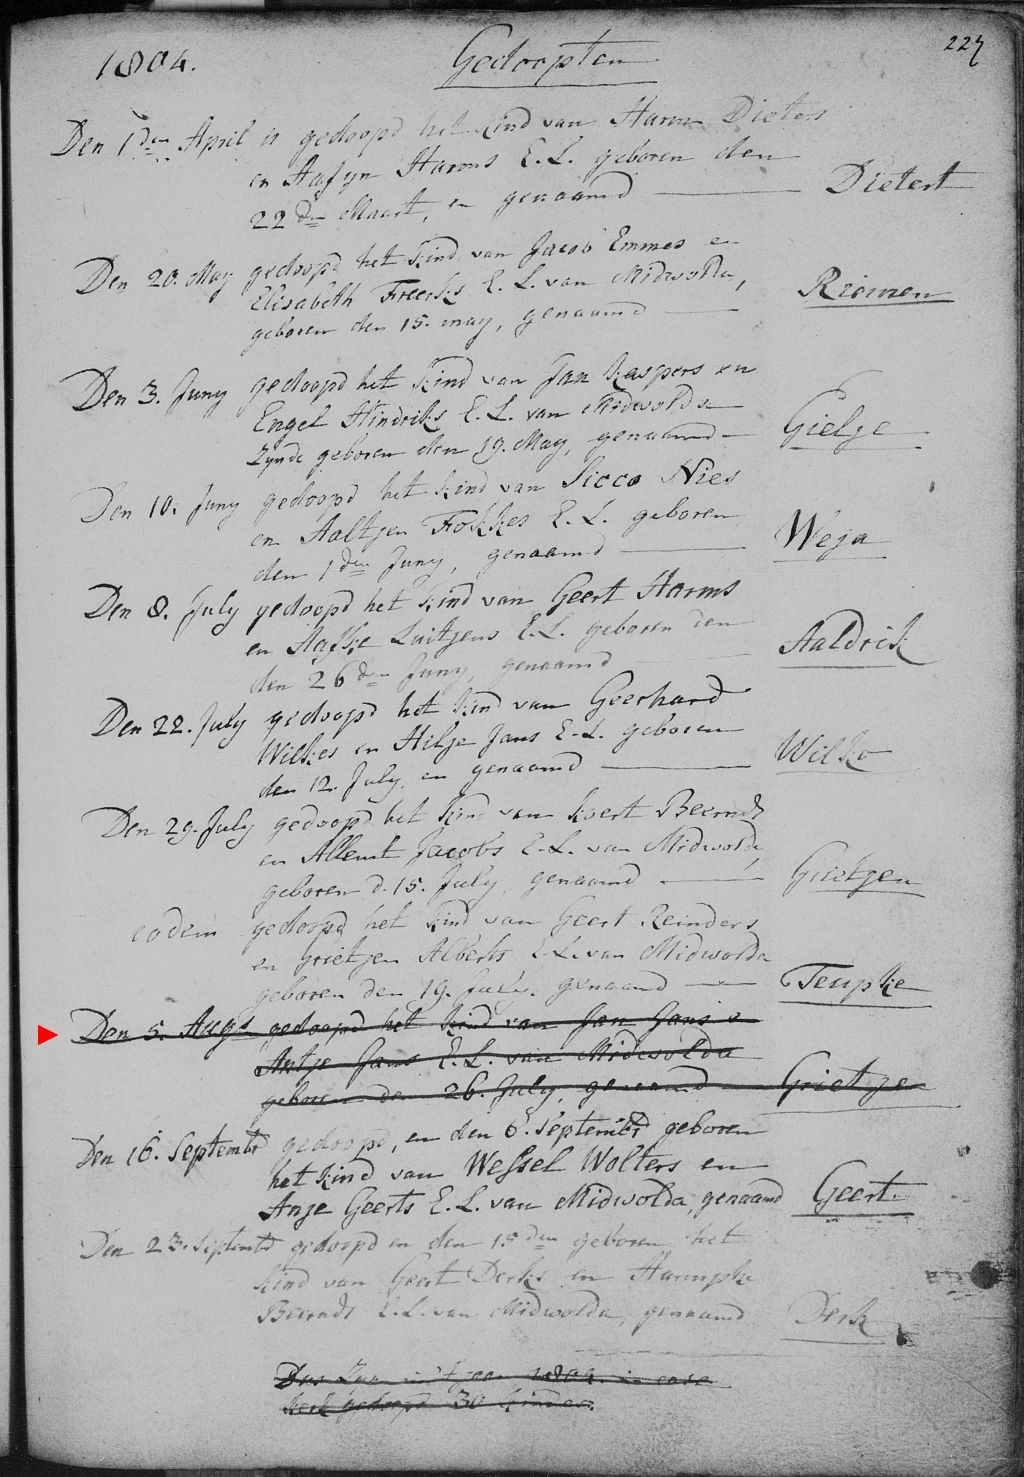 1804. Gedoopten 227
Den 1den April is gedoopd het kind van Harm Dieters
en Aafijn Harms E.L. geboren den
22 den Maart, en genaamd Dietert
Den 20. May gedoopd het kind van Jacob Emmes en
Elisabeth Freerks E.L. van Midwolda,
geboren den 15. may, genaamd Riemen
Den 3. Juny gedoopd het kind van Jan Kaspers en
Engel Hindriks E.L. van Midwolda
zynde geboren den 19. May, genaamd Gielje
Den 10. Juny gedoopd het kind van Sicco Nies
en Aaltjen Fokkes E.L. geboren
den 1den Juny, genaamd Weja
Den 8. July gedoopd het kind van Geert Harms
en Aafke Luitjens E.L. geboren den
den 26 den Juny, genaamd Aaldrik
Den 22. July gedoopd het kind van Geerhard
Wilkes en Hilje Jans E.L. geboren
den 12. July, en genaamd Wilko
Den 29. July gedoopd het kind van Koert Beerends
en Allemt Jacobs E.L. van Midwolda,
geboren d. 15. July, genaamd Grietjen
eodem gedoopd het kind van Geert Reinders
en Grietjen Alberts E.L. van Midwolda
geboren den 19. July. genaamd Teupke
Den 5. Augt gedoopd het kind van Jan Jans
Antje Jans E.L. van Midwolda
geboren den 26. July, genaamd Grietje
Den 16. Septembr gedoopd, en den 6. Septembr geboren
het kind van Wessel Wolters en
Anje Geerts E.L. van Midwolda, genaamd Geert.
Den 23. Septembr gedoopd en den 15 den geboren het
kind van Geert Derks en Harmpke
Beerends E.L. van Midwolda, genaamd Derk
Dus zyn in 't jaar 1804. in onse
kerk gedoopt 30 kinder.